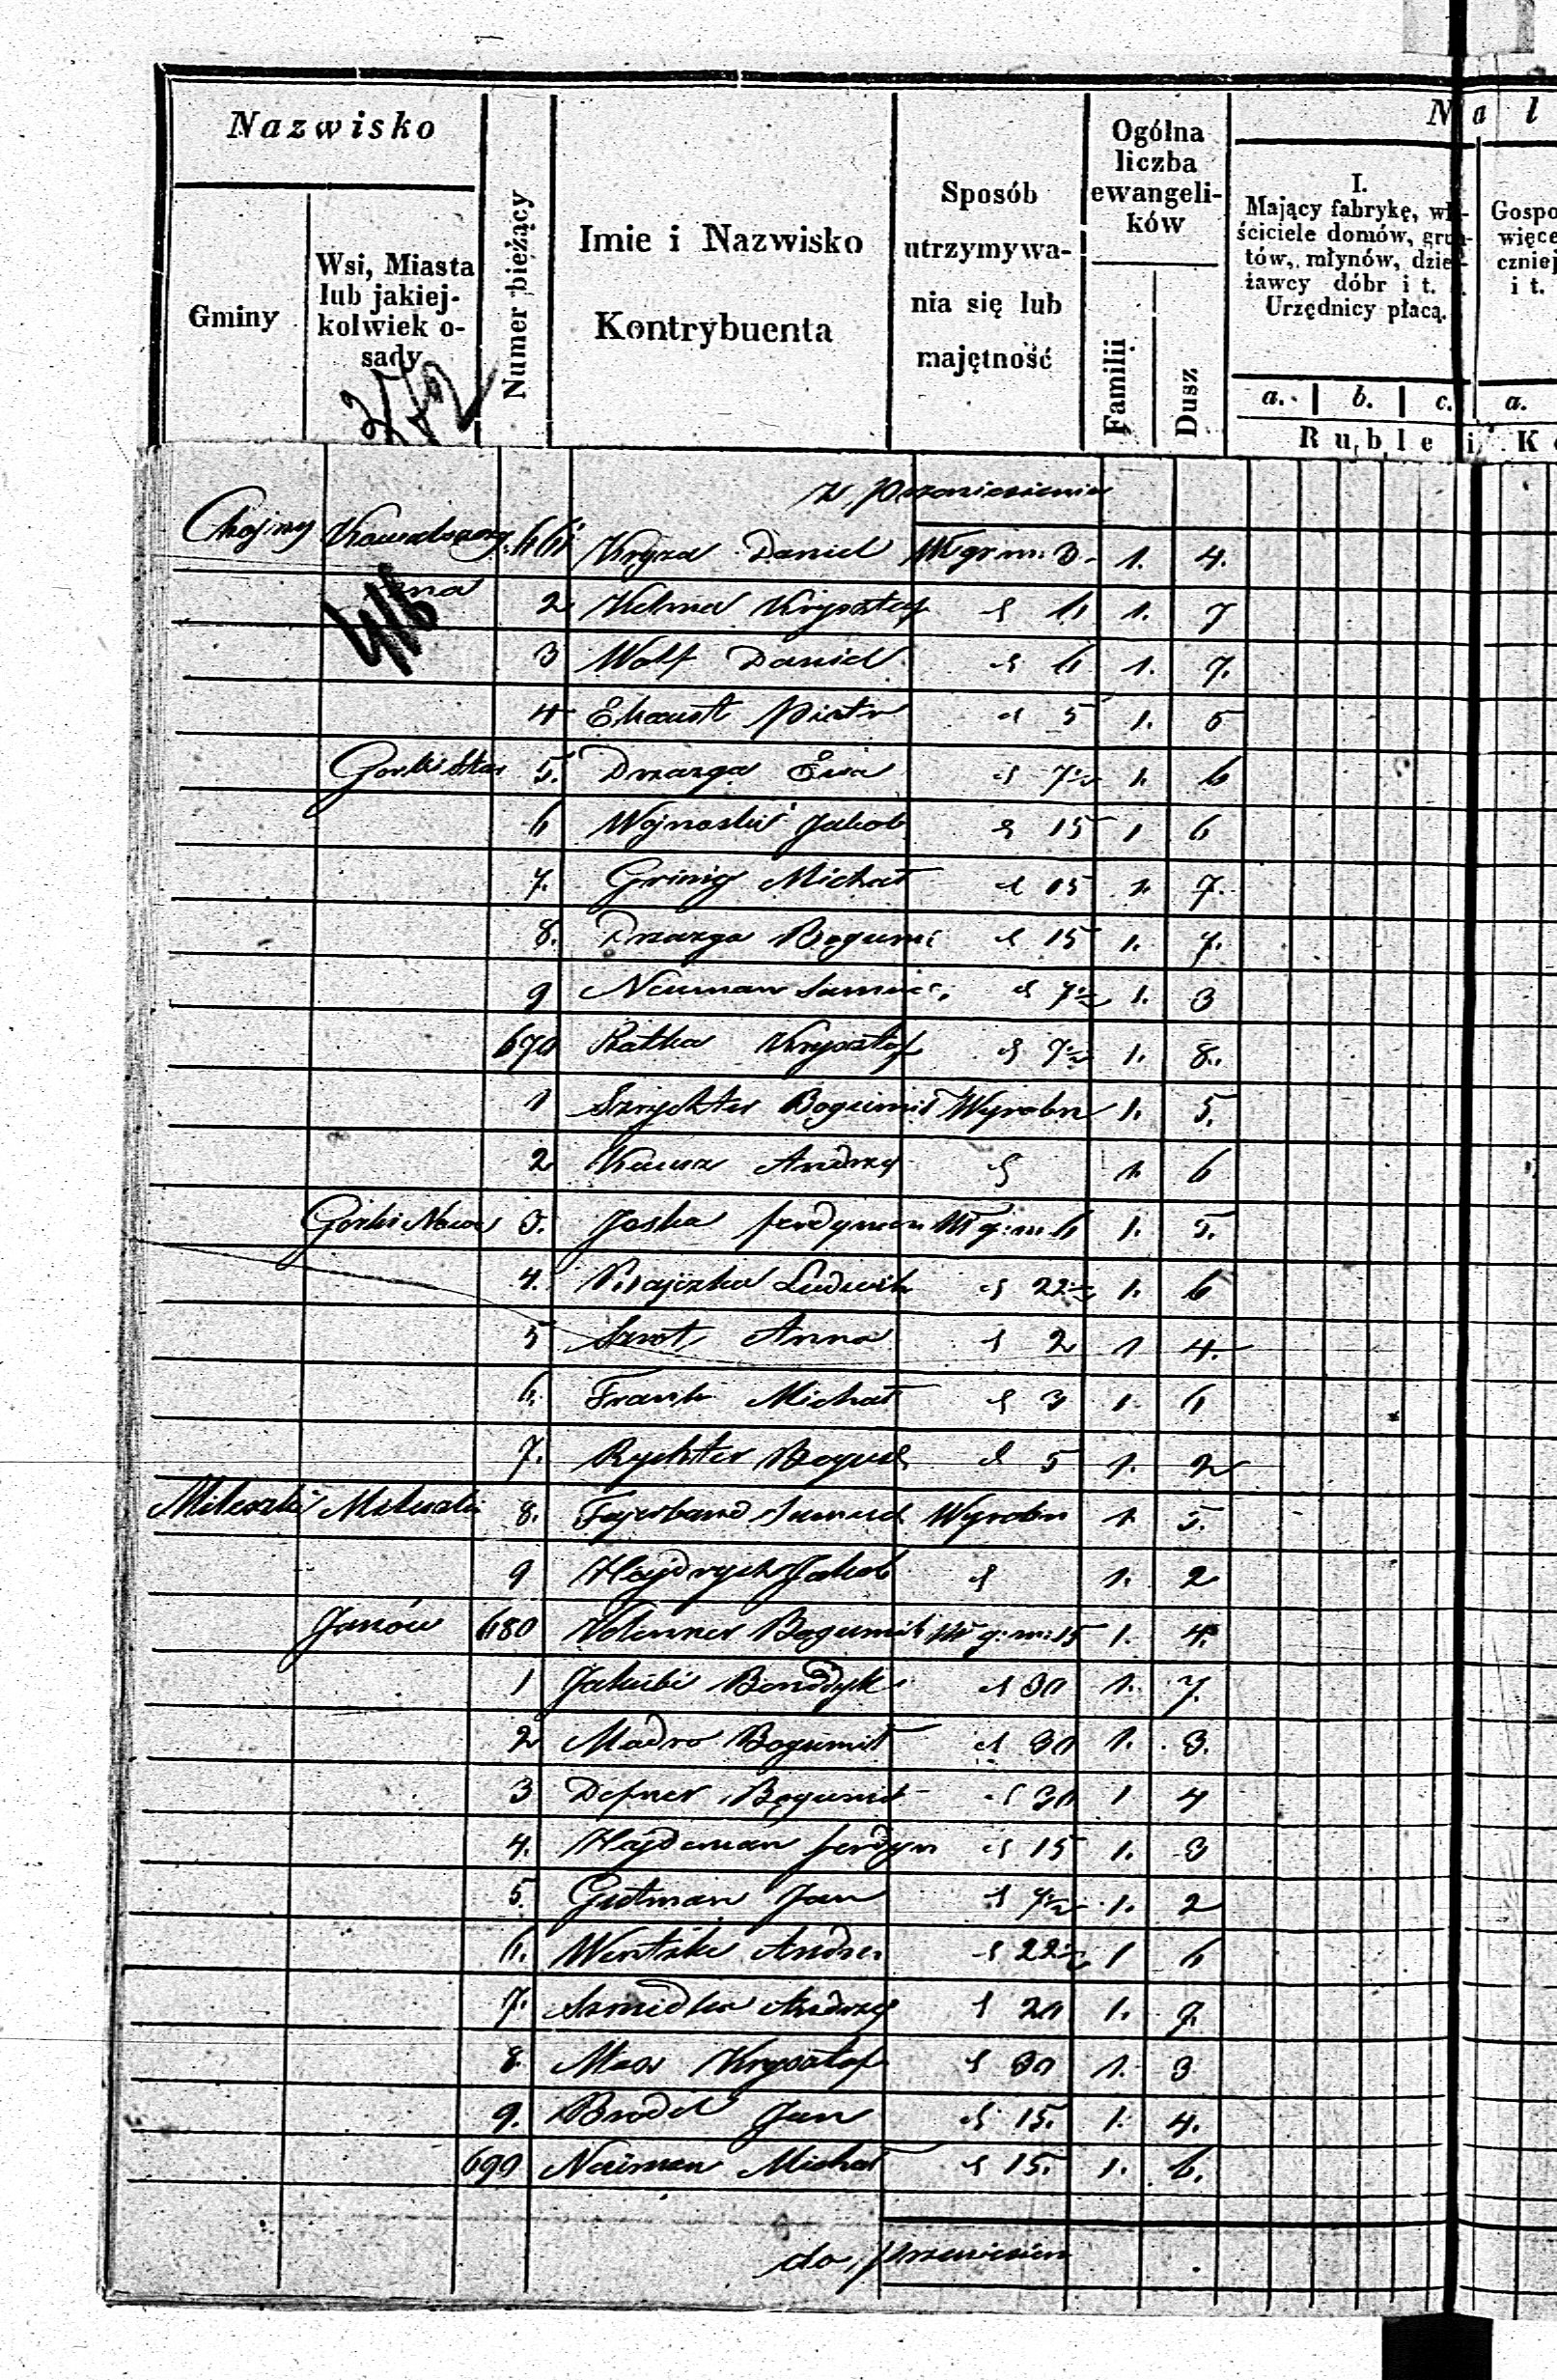 Nazwisko
Gminy
Wsi, Miasta
lub jakiej-
kolwiek o-
sady
Numer bieżący
Imie i Nazwisko
Kontrybuenta
Sposób
utrzymywa-
nia się lub
majętność
Ogólna
liczba
ewangeli-
ków
Familii
Dusz
N a l
I.
Mający fabrykę, wła-
ściciele domów, grun-
tów, młynów, dzier-
żawcy dóbr i t.
Urzędnicy płacą.
a. b. c.
Gospo
więce
czniej
i t.
a.
Ruble i K
z przeniesienia
Chojny 661 Kryza Daniel Wł gr m: 3 1. 4.
2 Kelma Krysztof d 6 1. 7
3 Wolf Daniel d 6 1. 7.
4 Ekaust Piotr d 5 1. 5
Gorki Star 5. Drzazga Ewa d 7½ 1. 6
6 Wojnoski Jakob d 15 1 6
7. Grinig Michał d 15 1. 7.
8. Drzazga Bogumi d 15 1. 7.
9 Neuman Samue d 7½ 1. 3
670 Ratka Krysztof d 7½ 1. 8.
1 Szrychter Bogumił Wyrobn 1. 5.
2 Andrzej d 1. 6
Górki Nowe 3. Joska ferdynan Wł g: m 6 1. 5.
4. Ludwik d 22½ 1. 6
5 Szrot Anna d 2 1 4.
6. Frank Michał d 3 1. 6
7. Rychter Bogud d 5 1. 2
Mileszki Mileszki 8. Fajerband Samuel Wyrobn 1. 5.
9 Hajdrych Jakob d 1. 2
Janów 680 Bogumił Wł g: m: 15 1. 4.
1 Jakubi Benedyk d 30 1. 7.
2 Madro Bogumił d 30 1. 3.
3 Defner Bogumił d 30 1 4
4. Hajdeman ferdyn d 15 1. 3
5. Gutman Jan d 7½ 1. 2
6. Wentzke Andrz d 22½ 1 6
7. Szmidke Andrzej d 20 1. 7.
8. Max Krysztof d 30 1. 3
9. Brodel Jan d 15. 1. 4.
690 Naiman Michał d 15. 1. 6.
do przeniesien